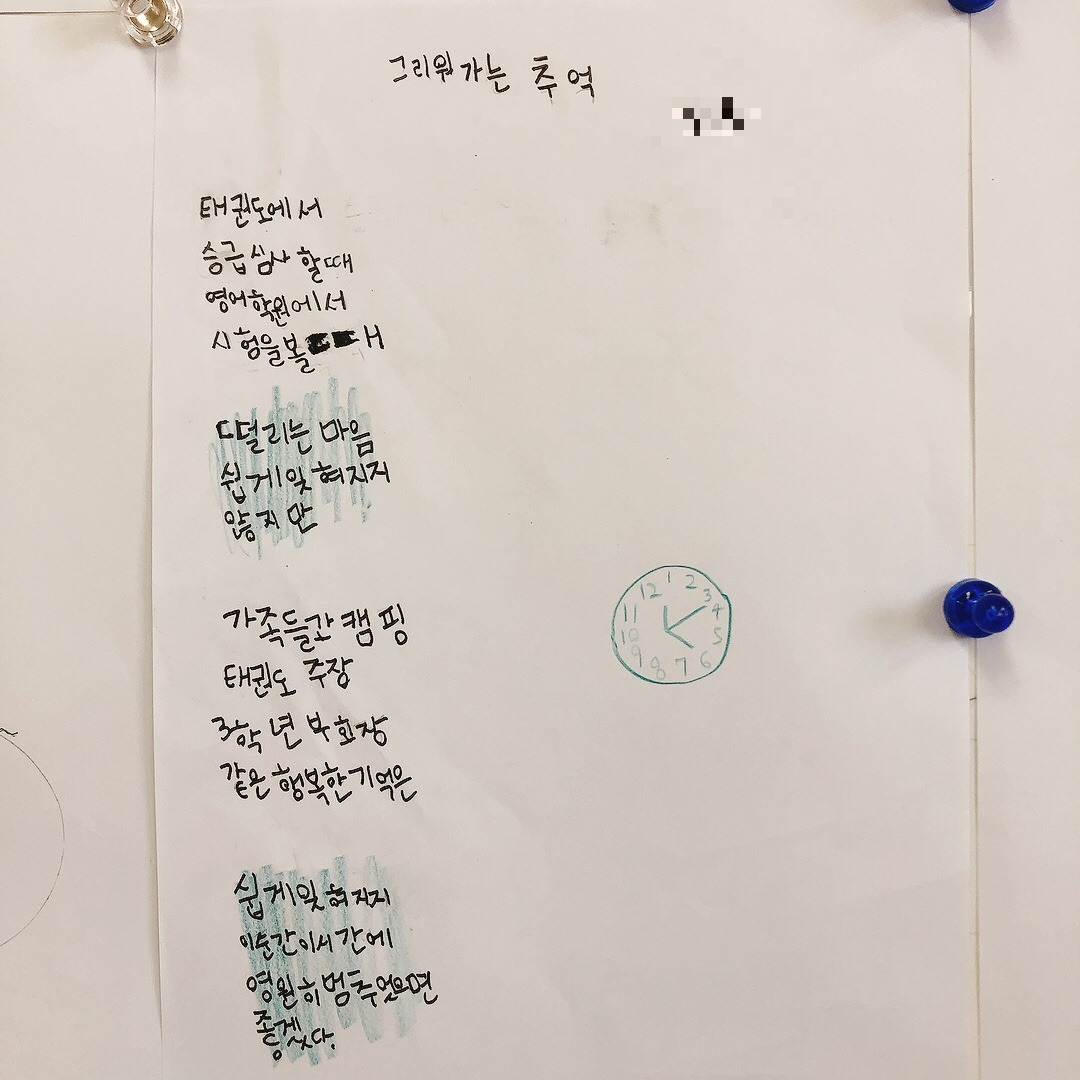 그리워 가는 추억
태권도에서
승급심사 할때
영어학원에서
시험을볼때
떨리는 마음
쉽게잊혀지지
않지만
가족들간 캠핑
태권도 주장
3학년 부회장
같은 행복한기억은
쉽게잊혀지지
이순간이시간에
영원히멈추었으면
좋겠다.
12 1 2 3 4 5 6 7 8 9 10 11